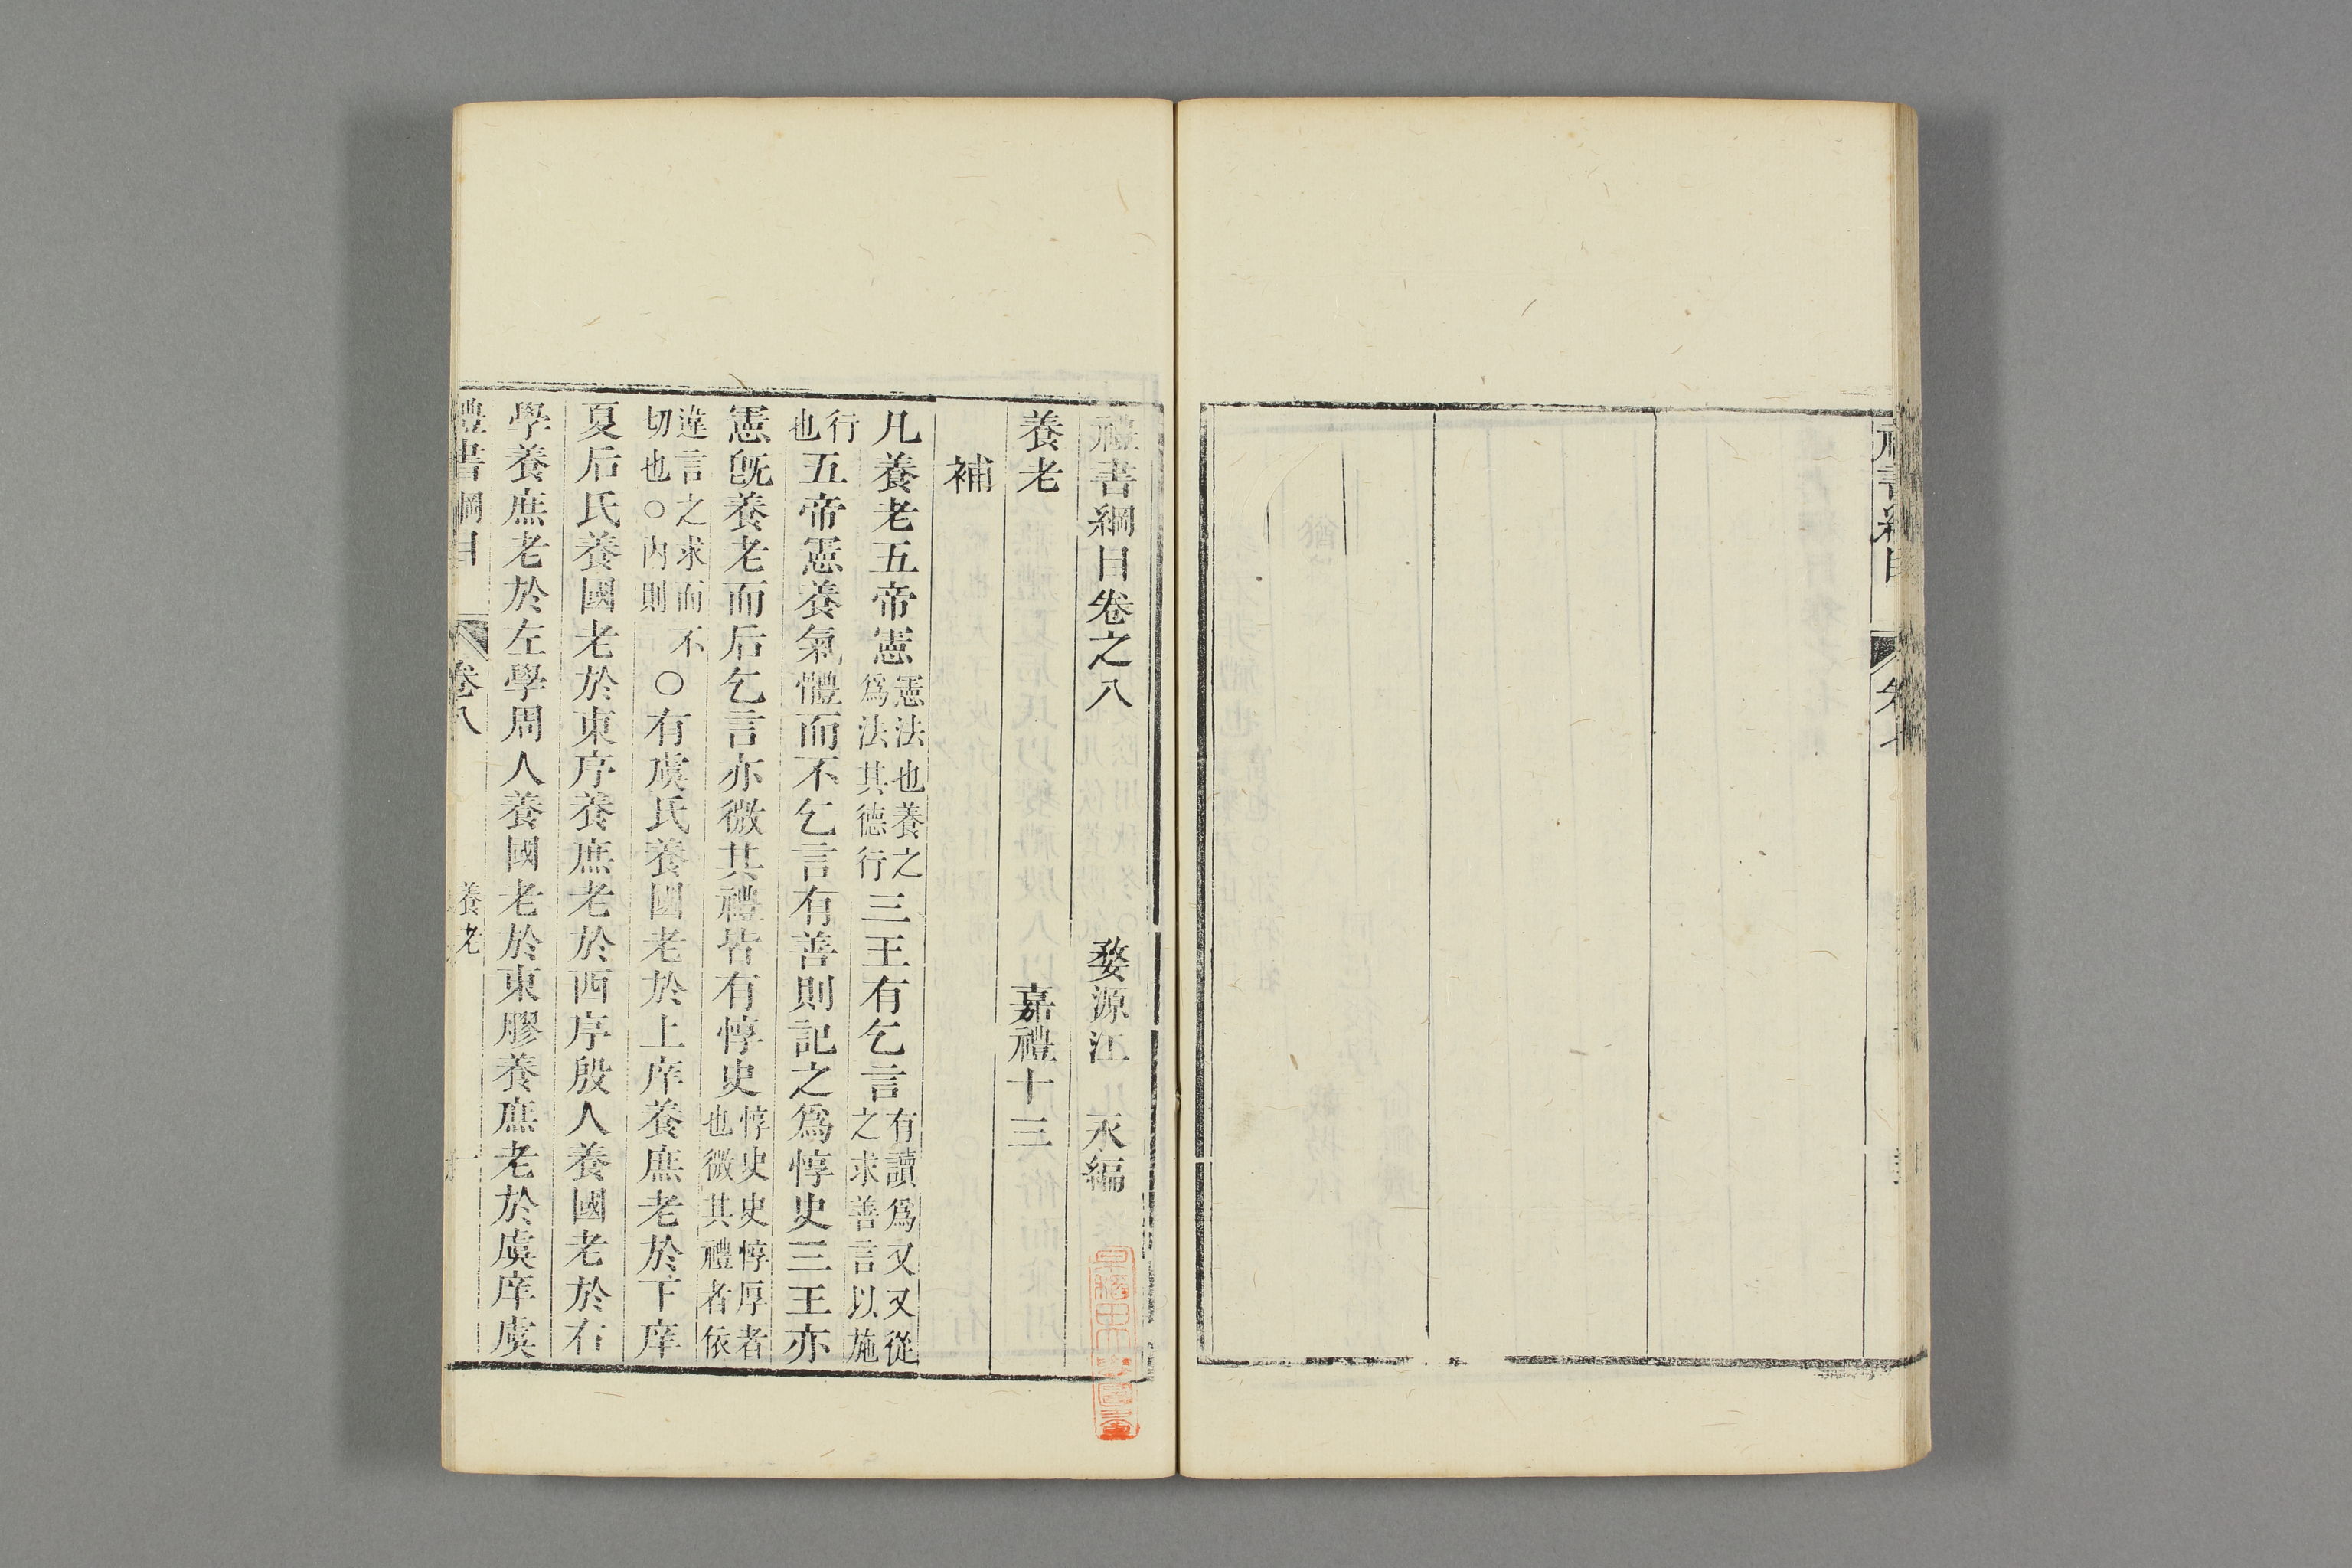 禮書綱目卷之八　婺源江　永編
養老　嘉禮十三
補
凡養老五帝憲憲法也養之爲法其德行三王有乞言有讀爲又又從之求善言以施
行也五帝憲養氣體而不乞言有善則記之爲惇史三王亦
憲旣養老而后乞言亦微其禮皆有惇史惇史史惇厚者也微其禮者依
違言之求而不切也○內則○有虞氏養國老於上庠養庶老於下庠
夏后氏養國老於東序養庶老於西序殷人養國老於右
學養庶老於左學周人養國老於東膠養庶老於虞庠虞
禮書綱目　卷八　養老　一